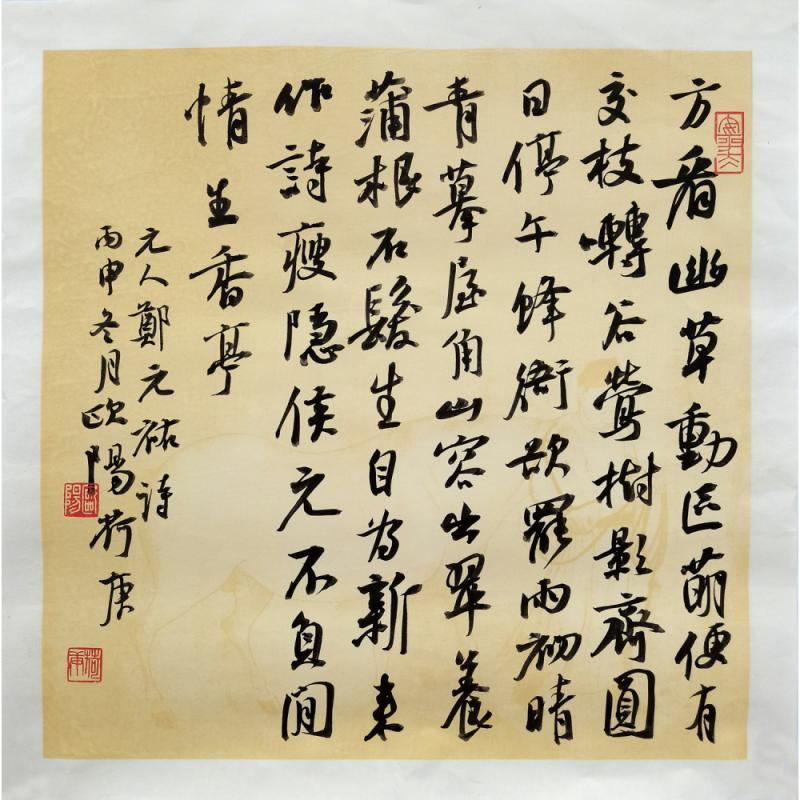 方看幽草動區萌便有
交枝囀谷鶯樹影齋圓
日停午蜂衙欲罷雨初晴
青摹屋角山容出翠養
蒲根石髮生自為新來
作詩瘦隱侯元不負閒
情 生香亭
元人鄭元祐詩
丙申冬月歐陽荷庚